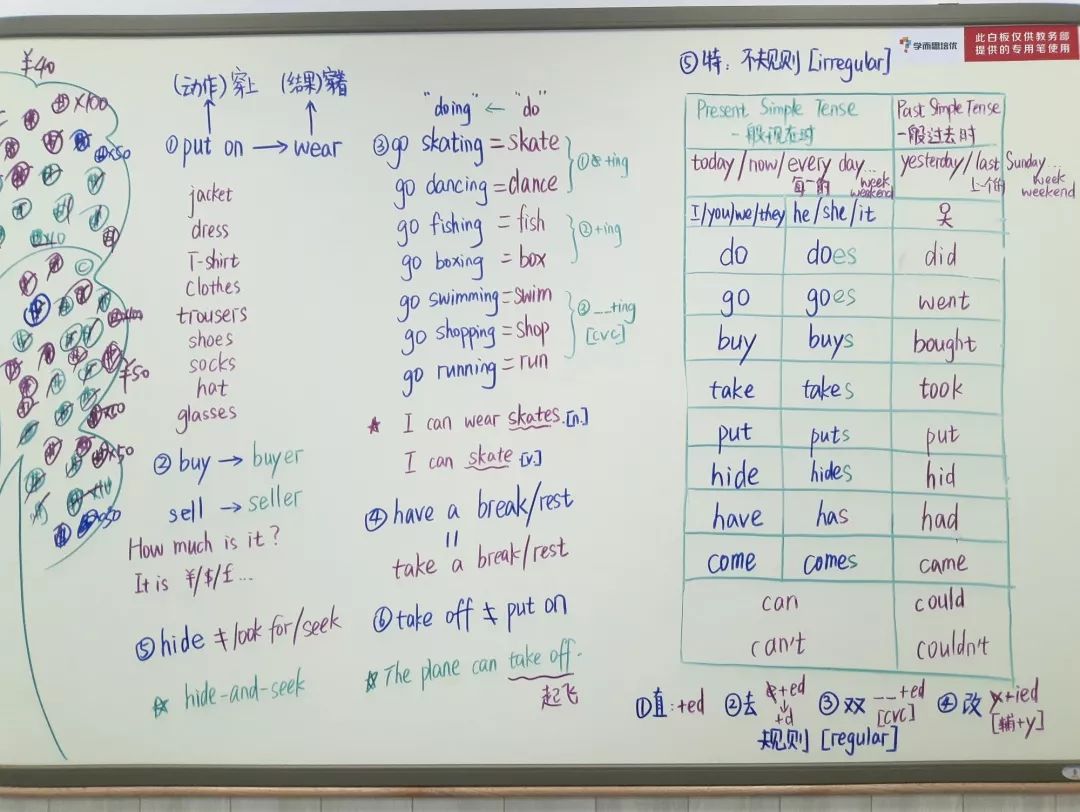 学而思培优
此白板仅供教务部
提供的专用笔使用
¥40
×100
×50
×10
©
¥50
×50
(动作)穿上 (结果)穿着
①put on → wear
jacket
dress
T-shirt
clothes
trousers
shoes
socks
hat
glasses
②buy → buyer
sell → seller
How much is it?
It is ¥/$/£...
⑤hide ≠ look for/seek
☆ hide-and-seek
"doing" ← "do"
③go skating = skate
go dancing = dance
①e+ing
go fishing = fish
go boxing = box
②+ing
go swimming = swim
go shopping = shop
go running = run
③__+ing
[cvc]
★ I can wear skates.[n.]
I can skate [v.]
④have a break/rest
=
take a break/rest
⑥take off ≠ put on
☆ The plane can take off.
起飞
⑤特: 不规则 [irregular]
Present Simple Tense Past Simple Tense
一般现在时 一般过去时
today/now/every day... yesterday/last Sunday...
每一的 week weekend 上个的 week weekend
I/you/we/they he/she/it
do does did
go goes went
buy buys bought
take takes took
put puts put
hide hides hid
have has had
come comes came
can could
can't couldn't
①直:+ed ②去 e+ed ③双 __+ed ④改 y+ied
↓ +d [cvc] [辅+y]
规则 [regular]